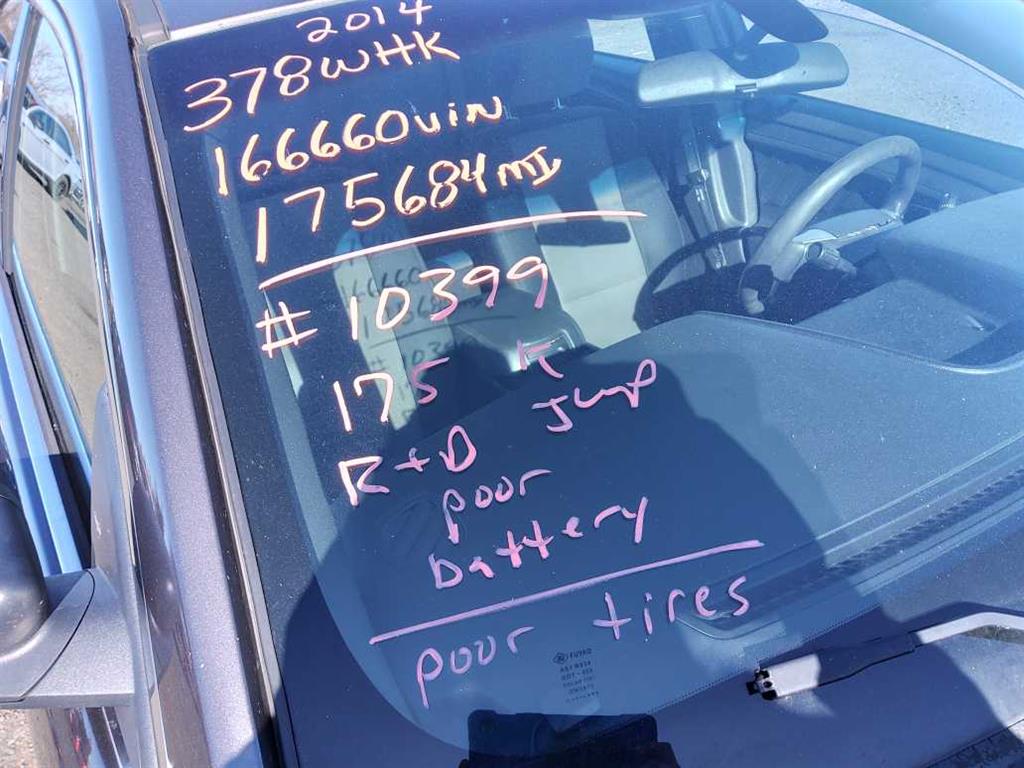 2014
378WHK
166660 VIN
175684 MI
# 10399
175 K
R+D Jump
poor
battery
poor tires
FUYAO